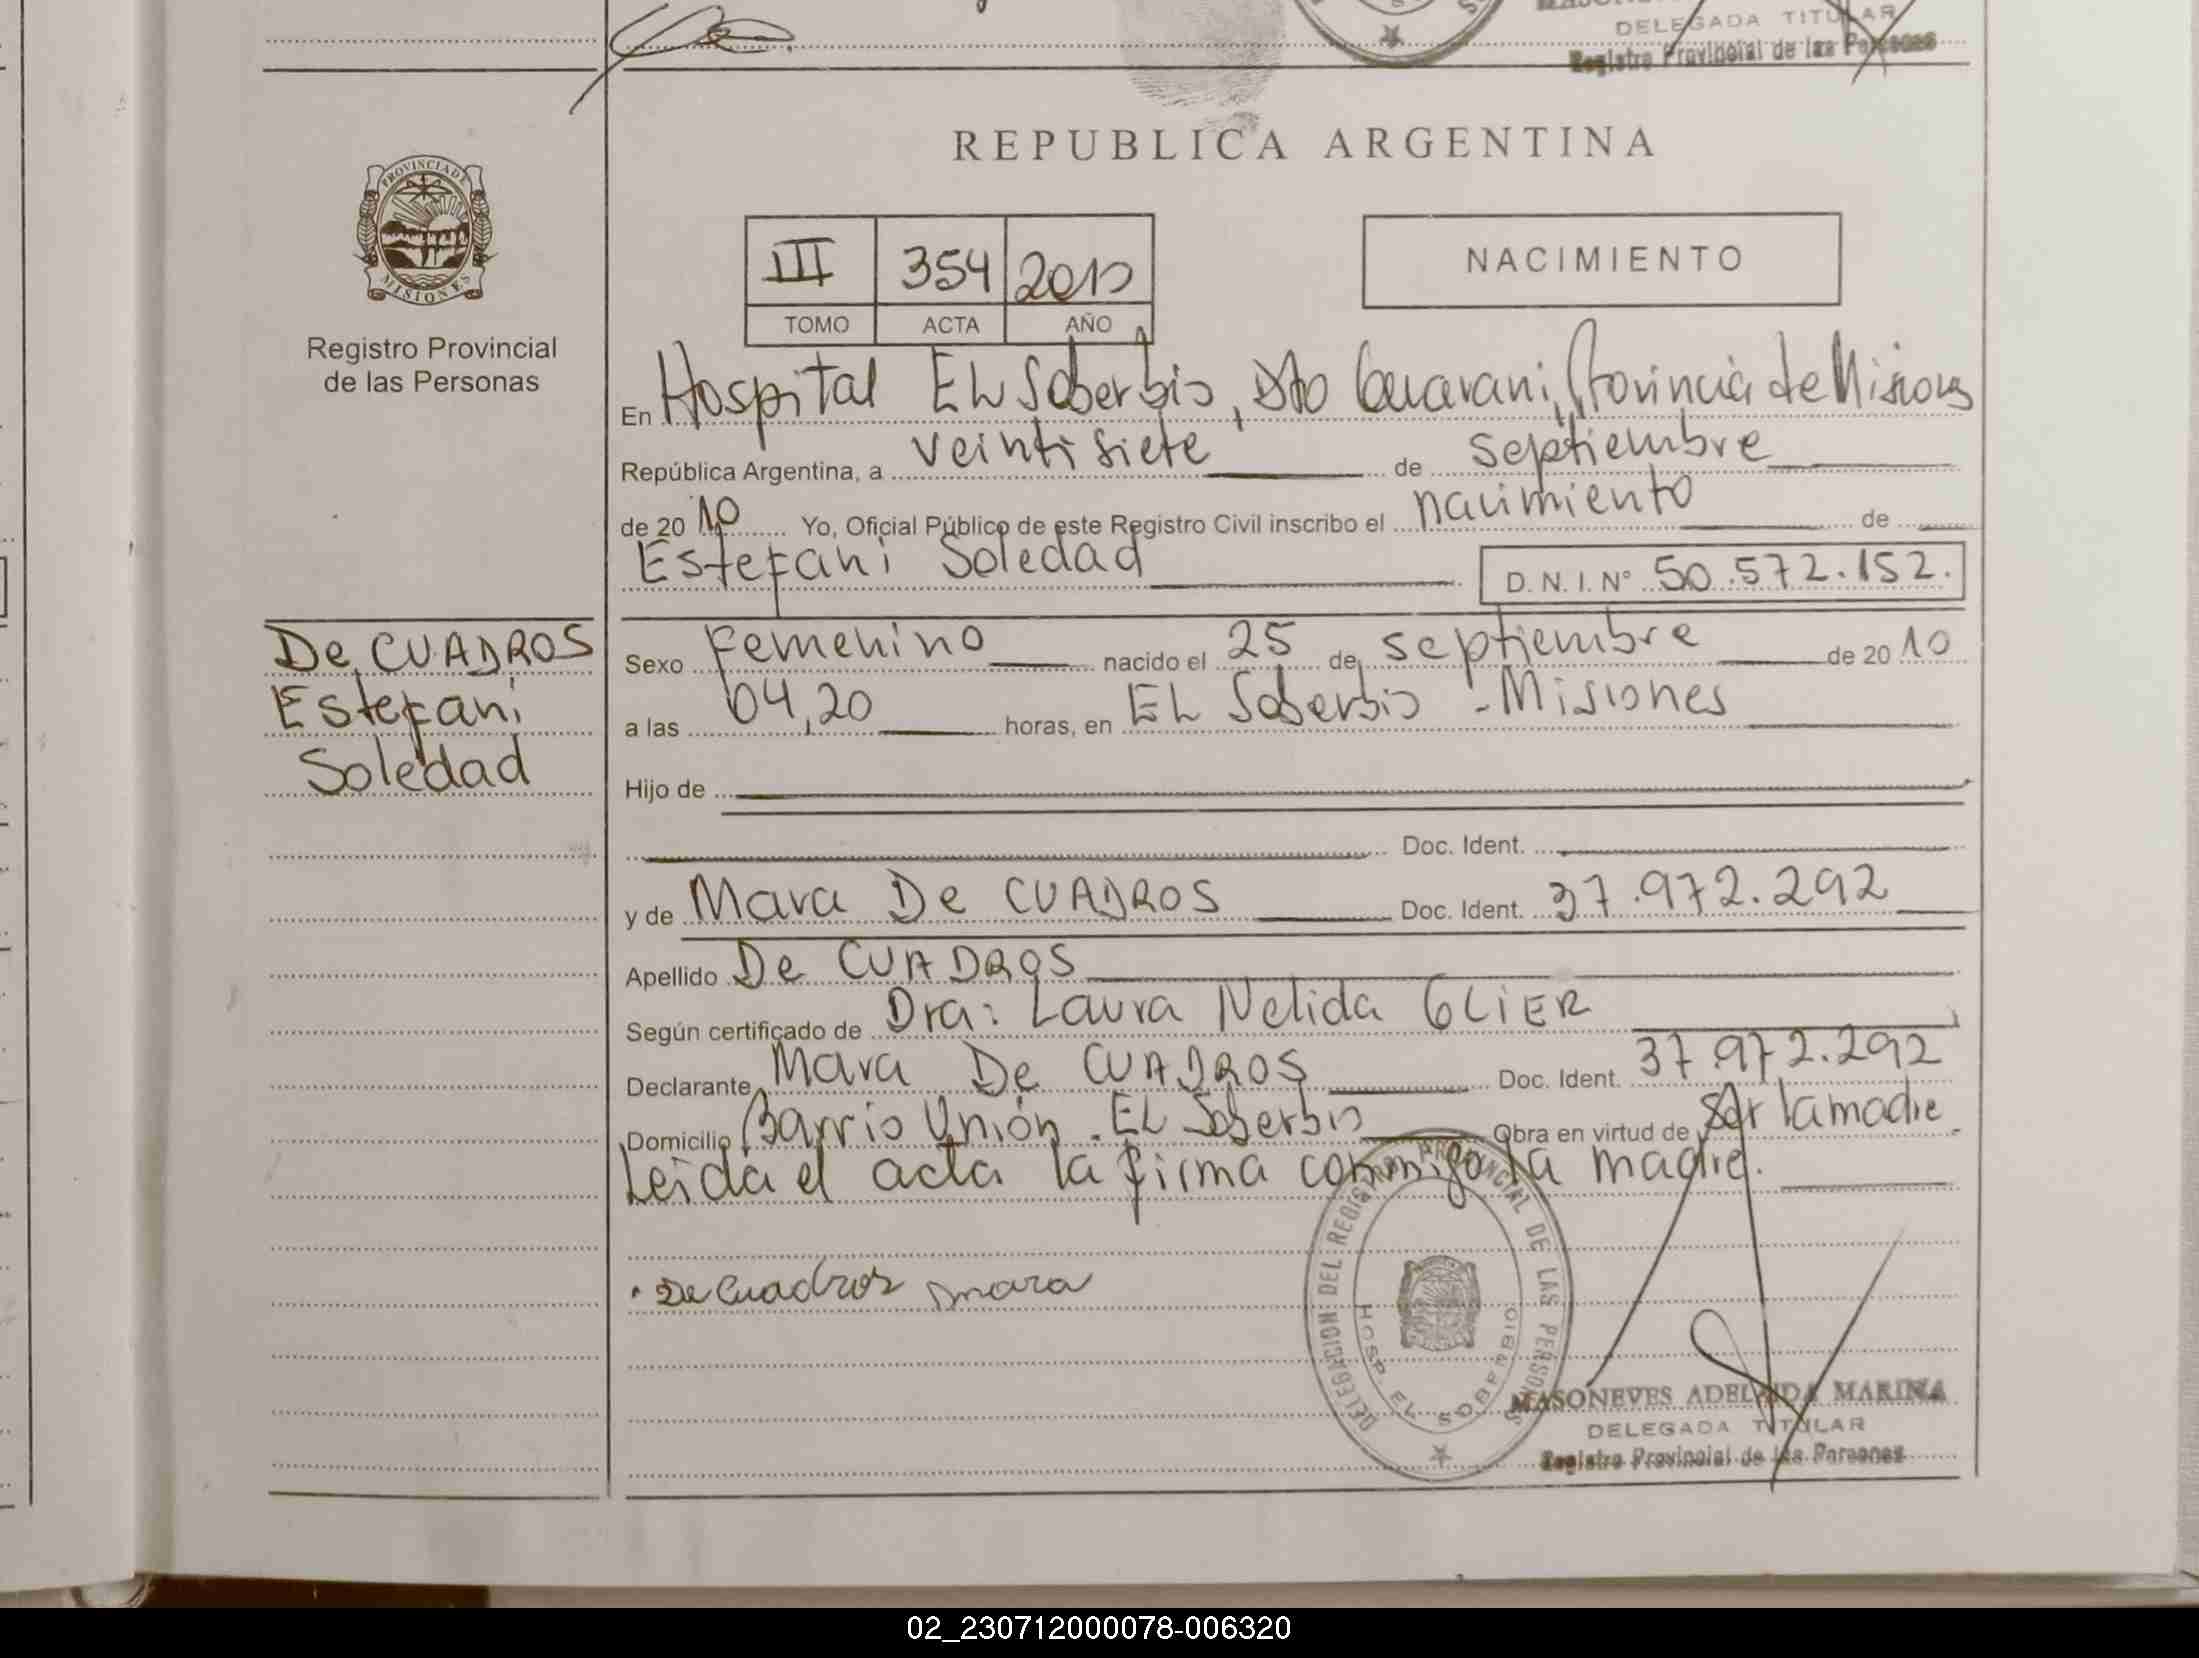 DELEGADA TITULAR
Registro Provincial de las Personas
REPUBLICA ARGENTINA
PROVINCIA DE MISIONES
Registro Provincial
de las Personas
III 354 2010
TOMO ACTA AÑO
NACIMIENTO
En Hospital EL Soberbio, Dto Guarani, Provincia de Misiones
República Argentina, a veintisiete de septiembre
de 2010 Yo, Oficial Público de este Registro Civil inscribo el nacimiento de
Estefani Soledad D. N. I. N° 50.572.152.
De CUADROS
Estefani
Soledad
Sexo Femenino nacido el 25 de septiembre de 2010
a las 04,20 horas, en EL Soberbio - Misiones
Hijo de
Doc. Ident.
y de Mara De CUADROS Doc. Ident. 37.972.292
Apellido De CUADROS
Según certificado de Dra: Laura Nelida GLIER
Declarante Mara De CUADROS Doc. Ident. 37.972.292
Domicilio Barrio Unión. EL Soberbio Obra en virtud de ser la madre.
Leida el acta la firma conmigo la madre.
De Cuadros mara
DELEGACION DEL REGISTRO PROVINCIAL DE LAS PERSONAS
HOSP. EL SOBERBIO
MASONEVES ADELAIDA MARINA
DELEGADA TITULAR
Registro Provincial de las Personas
02_230712000078-006320